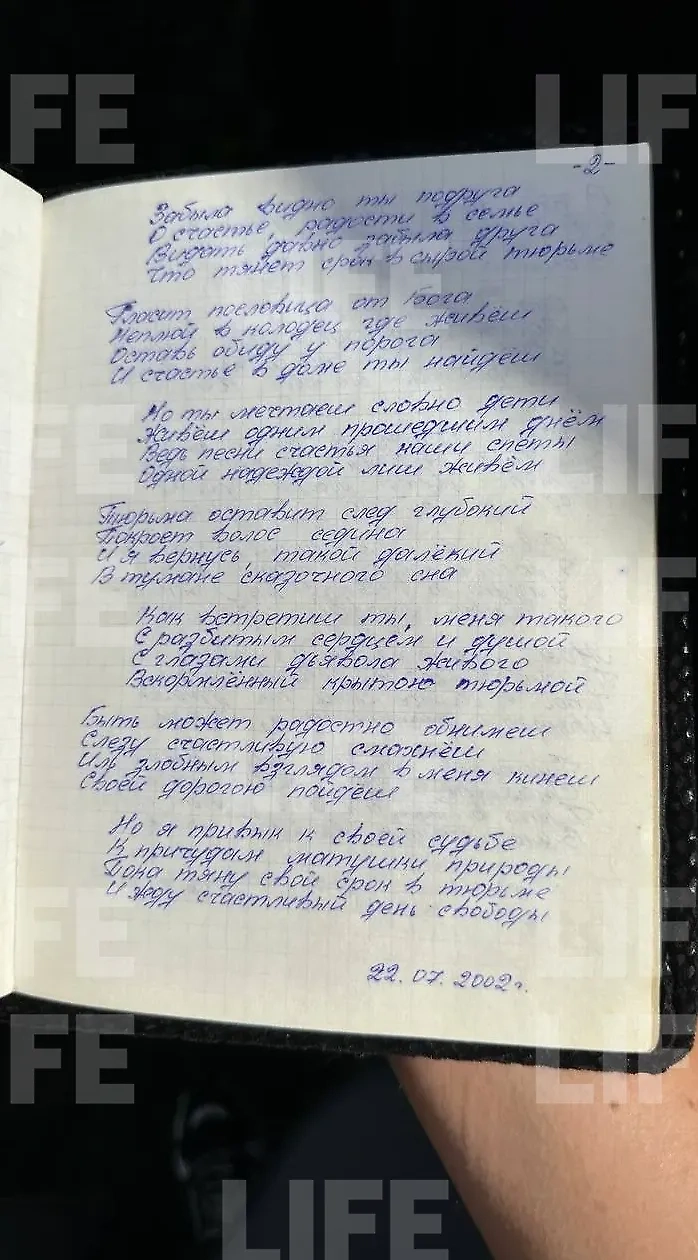 FE
LIF
-2-
Забыла видно ты подруга
О счастье, радости в семье
Видать давно забыла друга
Что тянет срок в сырой тюрьме
Гласит пословица от Бога
Неплюй в колодец где живёш
Оставь обиду у порога
И счастье в доме ты найдёш
Но ты мечтаеш словно дети
Живёш одним прошедшим днём
Ведь песни счастья наши спеты
Одной надеждой лиш живём
Тюрьма оставит след глубокий
Покроет волос седина
И я вернусь, такой далёкий
В тумане сказочного сна
Как встретиш ты, меня такого
С разбитым сердцем и душой
С глазами дьявола живого
Вскормлённый крытою тюрьмой
Быть может радостно обнимеш
Слезу счастливую смахнёш
Иль злобным взглядом в меня кинеш
Своей дорогою пойдёш
Но я привык к своей судьбе
К причудам матушки природы
Пока тяну свой срок в тюрьме
И жду счастливый день свободы
22.07.2002г.
FE
LIF
FE
LIFE